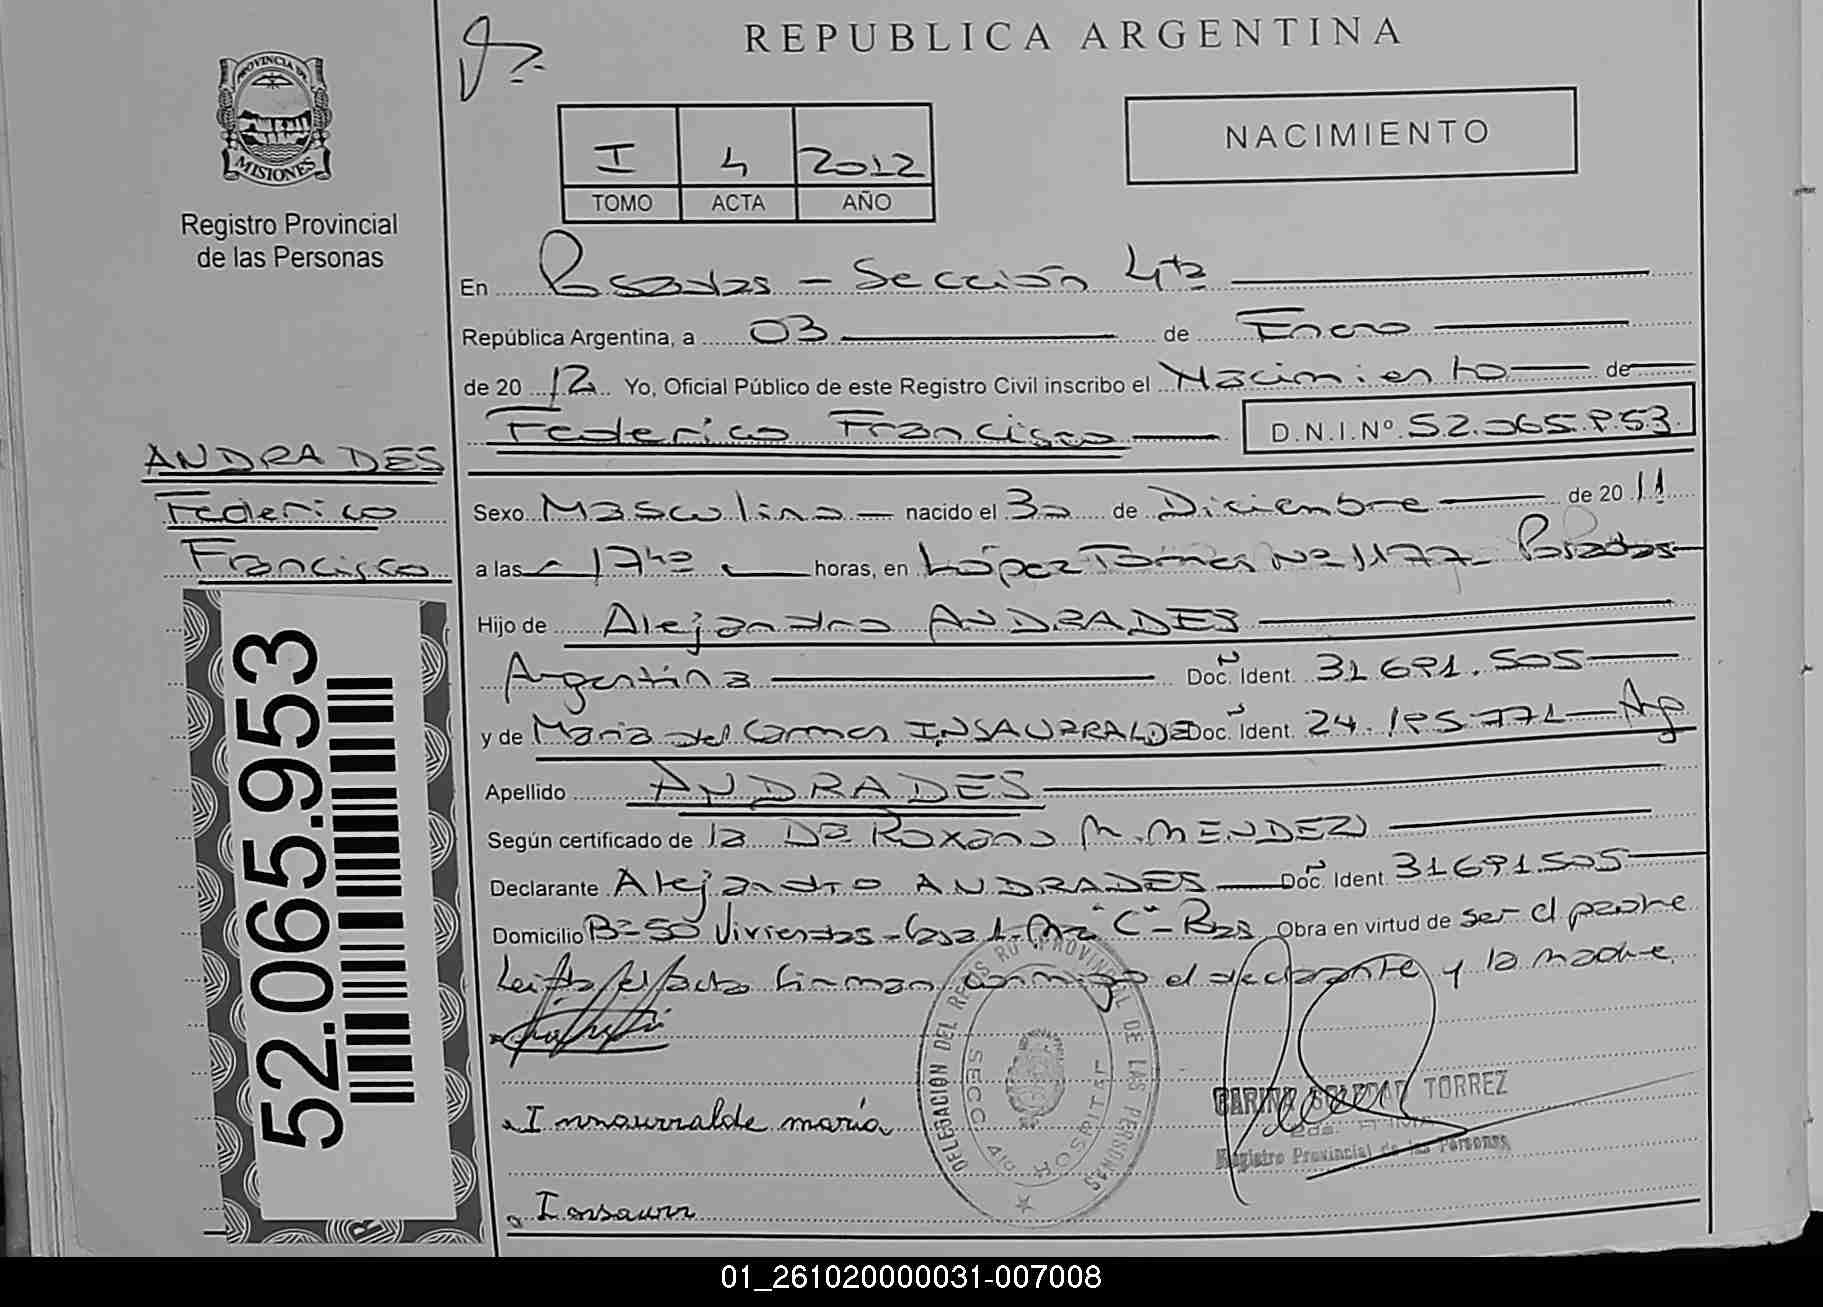 REPUBLICA ARGENTINA
PROVINCIA DE
MISIONES
Registro Provincial
de las Personas
I 4 2012
TOMO ACTA AÑO
NACIMIENTO
En Posadas - Sección 4ta
República Argentina, a 03 de Enero
de 2012 Yo, Oficial Público de este Registro Civil inscribo el Nacimiento de
Federico Francisco D.N.I.Nº 52.065.953
ANDRADES
Federico
Francisco
52.065.953
Sexo Masculino nacido el 30 de Diciembre de 2011
a las 17 horas, en López Torres Nº 1177 - Posadas
Hijo de Alejandro ANDRADES
Argentina Doc. Ident. 31.691.505
y de María del Carmen INSAURRALDE Doc. Ident. 24.195.771 Arg
Apellido ANDRADES
Según certificado de la Dra Roxana M. MENDEZ
Declarante Alejandro ANDRADES Doc. Ident. 31691.505
Domicilio Bº 50 Viviendas - Casa 1 - Mz "C" - Pdas Obra en virtud de ser el padre
Leída el acta firman conmigo el declarante y la madre
Insaurralde maría
Insaurr
DELEGACIÓN DEL REGISTRO PROVINCIAL DE LAS PERSONAS
SECC 4ta HOSPITAL
CARINA SOLEDAD TORREZ
Registro Provincial de las Personas
01_261020000031-007008